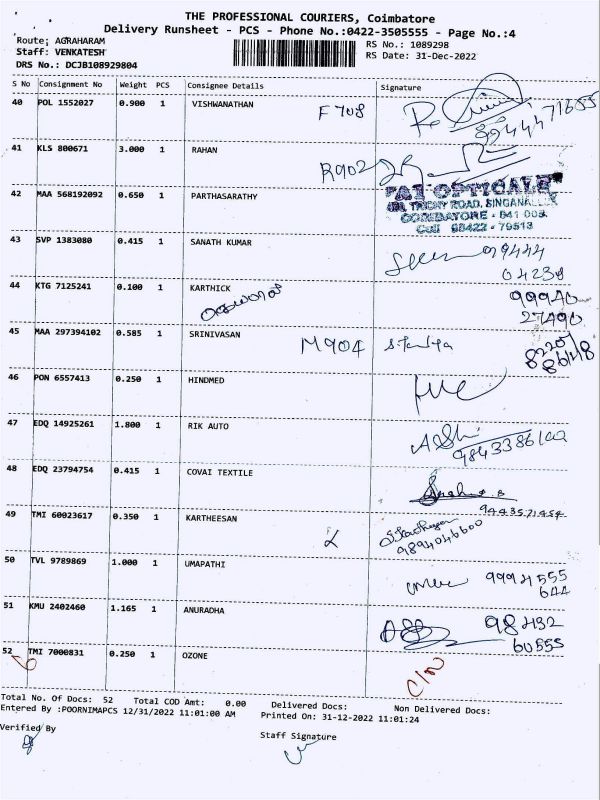 THE PROFESSIONAL COURIERS, Coimbatore
Delivery Runsheet - PCS - Phone No.:0422-3505555 - Page No.:4
Route: AGRAHARAM
RS No.: 1089298
Staff: VENKATESH
RS Date: 31-Dec-2022
DRS No.: DCJB108929804
S No Consignment No Weight PCS Consignee Details Signature
40 POL 1552027 0.900 1 VISHWANATHAN F 708
41 KLS 800671 3.000 1 RAHAN R902
42 MAA 568192092 0.650 1 PARTHASARATHY
"A1 OPTICALS"
TRICHY ROAD, SINGANALLUR
COIMBATORE - 641 005.
Cell 98422 - 79513
43 SVP 1383080 0.415 1 SANATH KUMAR
44 KTG 7125241 0.100 1 KARTHICK 99940
27490
45 MAA 297394102 0.585 1 SRINIVASAN M904
46 PON 6557413 0.250 1 HINDMED
47 EDQ 14925261 1.800 1 RIK AUTO
48 EDQ 23794754 0.415 1 COVAI TEXTILE
49 TMI 60023617 0.350 1 KARTHEESAN 9894046600
50 TVL 9789869 1.000 1 UMAPATHI 9994555
644
51 KMU 2402460 1.165 1 ANURADHA 98432
60555
52 TMI 7000831 0.250 1 OZONE
Total No. Of Docs: 52 Total COD Amt: 0.00 Delivered Docs: Non Delivered Docs:
Entered By :POORNIMAPCS 12/31/2022 11:01:00 AM Printed On: 31-12-2022 11:01:24
Verified By
Staff Signature